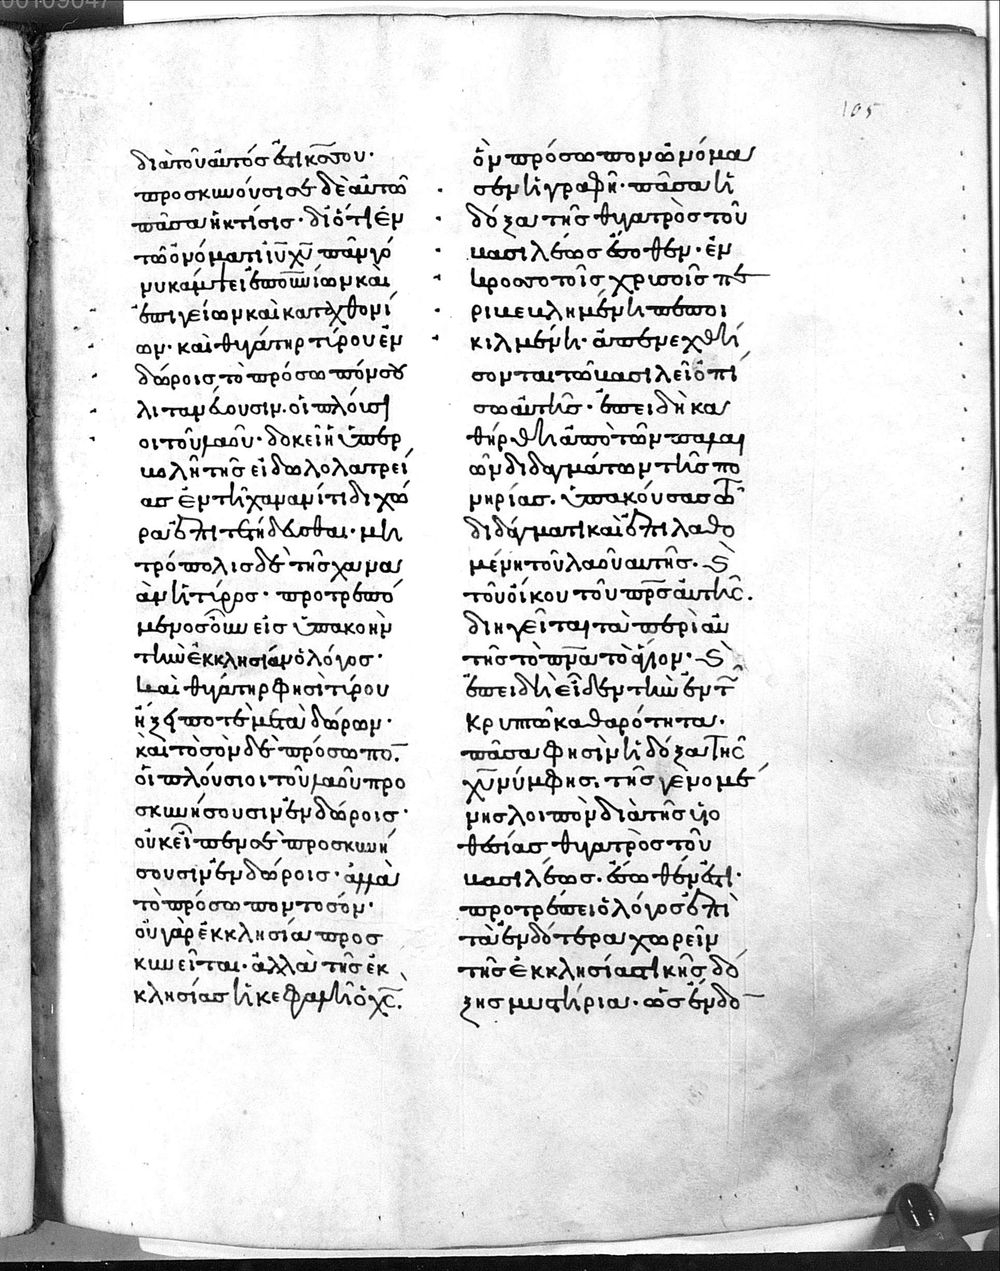 105
διατοῦ αὐτός ἐστι κ̅ς̅ σου·
προσκυνοῦσι δὲ αὐτῶ
πᾶσα ἡ κτίσις· διότι ἐν
τῶ ὀνόματι ι̅υ̅ χ̅υ̅ πᾶν γό
νυ κάμπτει ἐπου̅νίων καὶ
ἐπιγείων καὶ καταχθονί
ων· καὶ θυγάτηρ τύρου ἐν
δώροις τὸ πρόσωπόν σου
λιτανεύουσιν· οἱ πλούσι
οι τοῦ λαοῦ· δοκεῖ ἡ ὑπερ
βολὴ τῆς εἰδωλολατρεί
ας ἐν τῆ χαναανίτιδι χώ
ρα ἐπιτετηδεῦσθαι· μη
τρόπολις δὲ τῆς χανα
ὰν ἡ τύρος· προτρεπό
μενος οὖν εἰς ὑπακοὴν
τὴν ἐκκλησίαν ὁ λόγος·
καὶ θυγάτηρ φησὶ τύρου
ἥξει ποτὲ μετὰ δώρων·
καὶ τὸ σὸν δὲ πρόσωπο̅.
οἱ πλούσιοι τοῦ λαοῦ προ
σκυνήσουσιν ἐν δώροις·
οὐκ εἶπεν σὲ προσκυνή
σουσιν ἐν δώροις· ἀλλὰ
τὸ πρόσωπον τὸ σόν·
οὐ γὰρ ἐκκλησία προσ
κυνεῖται· ἀλλὰ τῆς ἐκ
κλησίας ἡ κεφαλὴ ὁ χ̅ς̅.
ὃν πρόσωπον ὠνόμα
σεν ἡ γραφή· πᾶσα ἡ
δόξα τῆς θυγατρὸς τοῦ
βασιλέως ἔσωθεν· ἐν
κροσσωτοῖς χρυσοῖς πε
ριβεβλημένη πεποι
κιλμένη· ἀπενεχθή
σονται τῶ βασιλεῖ ὀπί
σω αὐτῆς· ἐπειδὴ κα
θήρθη ἀπὸ τῶν παλαι
ῶν διδαγμάτων τῆς πο
νηρίας. ὑπακούσασα τῶ
διδάγματι καὶ ἐπιλαθο
μένη τοῦ λαοῦ αὐτῆς· καὶ
τοῦ οἴκου τοῦ π̅ρ̅ς̅ αὐτῆς.
διηγεῖται τὰ περὶ αὐ
τῆς τὸ π̅ν̅α̅ τὸ ἅγιον· καὶ
ἐπειδὴ εἶδεν τὴν ἐν τῶ
κρυπτῶ καθαρότητα·
πᾶσα φησὶν ἡ δόξα τῆς
χ̅υ̅ νύμφης. τῆς γενομέ
νης λοιπὸν διὰ τῆς υἱο
θεσίας θυγατρὸς τοῦ
βασιλέως. ἔσωθέν ἐστι·
προτρέπει ὁ λόγος ἐπὶ
τὰ ἐνδότερα χωρεῖν
τῆς ἐκκλησιαστικῆς δό
ξης μυστήρια· ὡς ἔνδο